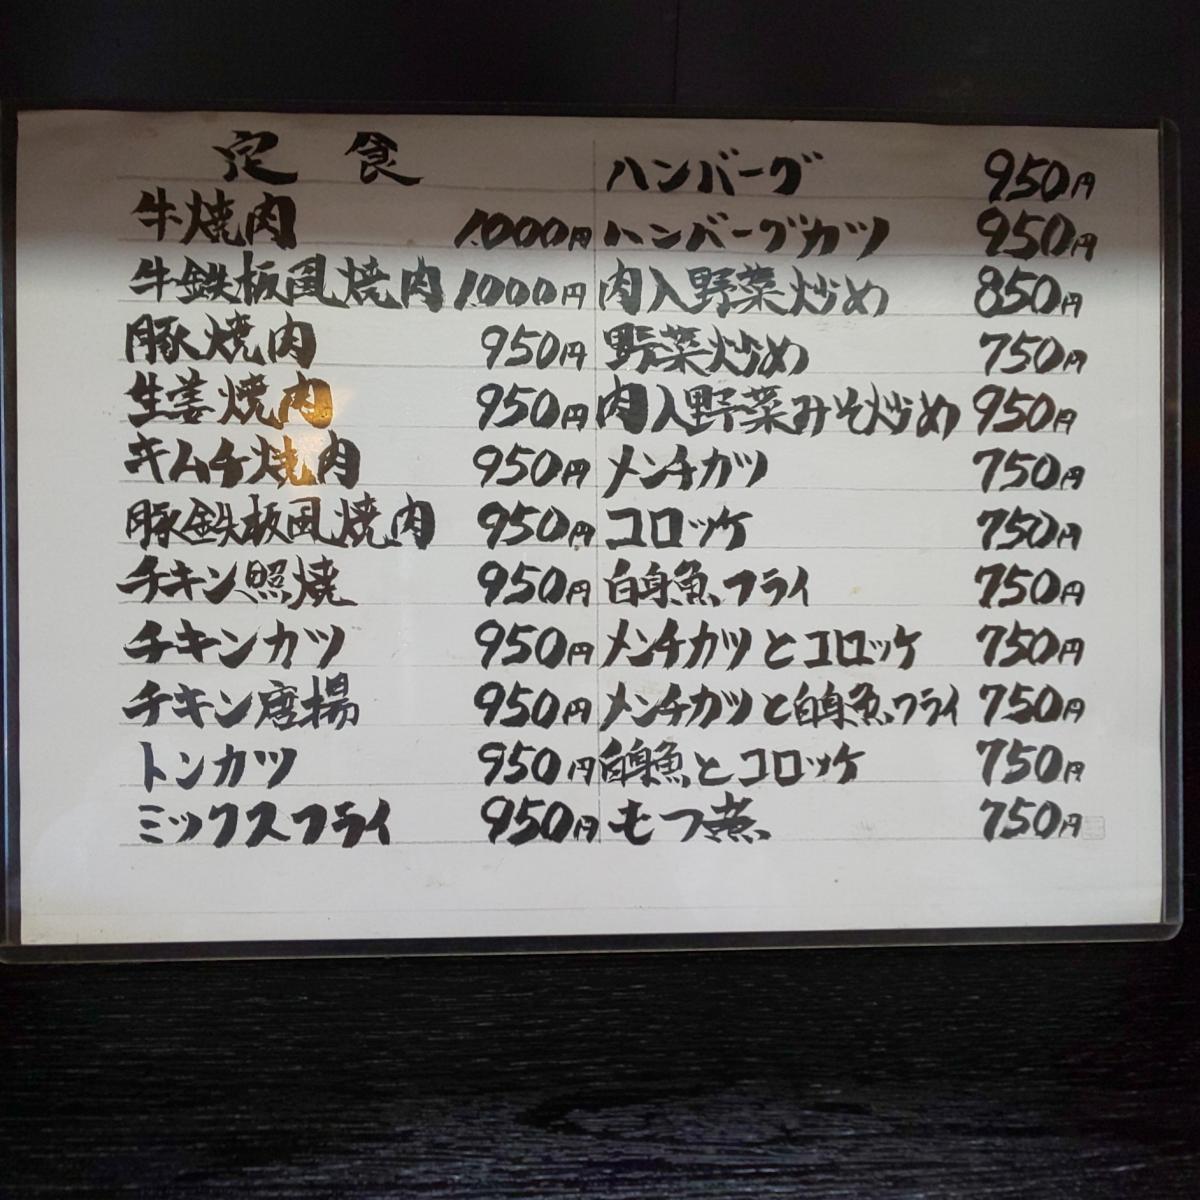 定食
牛焼肉 1.000円
牛鉄板風焼肉 1.000円
豚焼肉 950円
生姜焼肉 950円
キムチ焼肉 950円
豚鉄板風焼肉 950円
チキン照焼 950円
チキンカツ 950円
チキン唐揚 950円
トンカツ 950円
ミックスフライ 950円
ハンバーグ 950円
ハンバーグカツ 950円
肉入野菜炒め 850円
野菜炒め 750円
肉入野菜みそ炒め 950円
メンチカツ 750円
コロッケ 750円
白身魚フライ 750円
メンチカツとコロッケ 750円
メンチカツと白身魚フライ 750円
白身魚とコロッケ 750円
もつ煮 750円